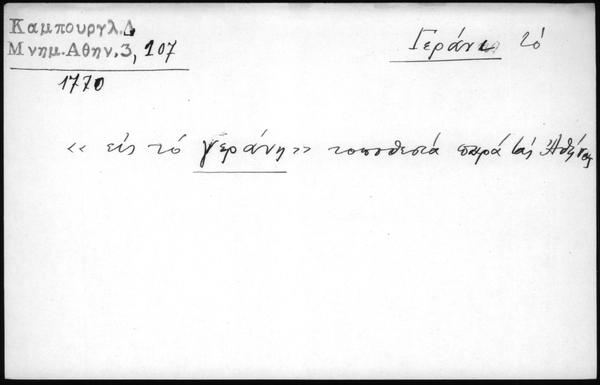 Καμπουργλ.Δ.
Μνημ.Αθην.3, 107
1770
Γεράνι τό
«εις τό γεράνη» τοποθεσιά παρά τάς Ἀθήνας